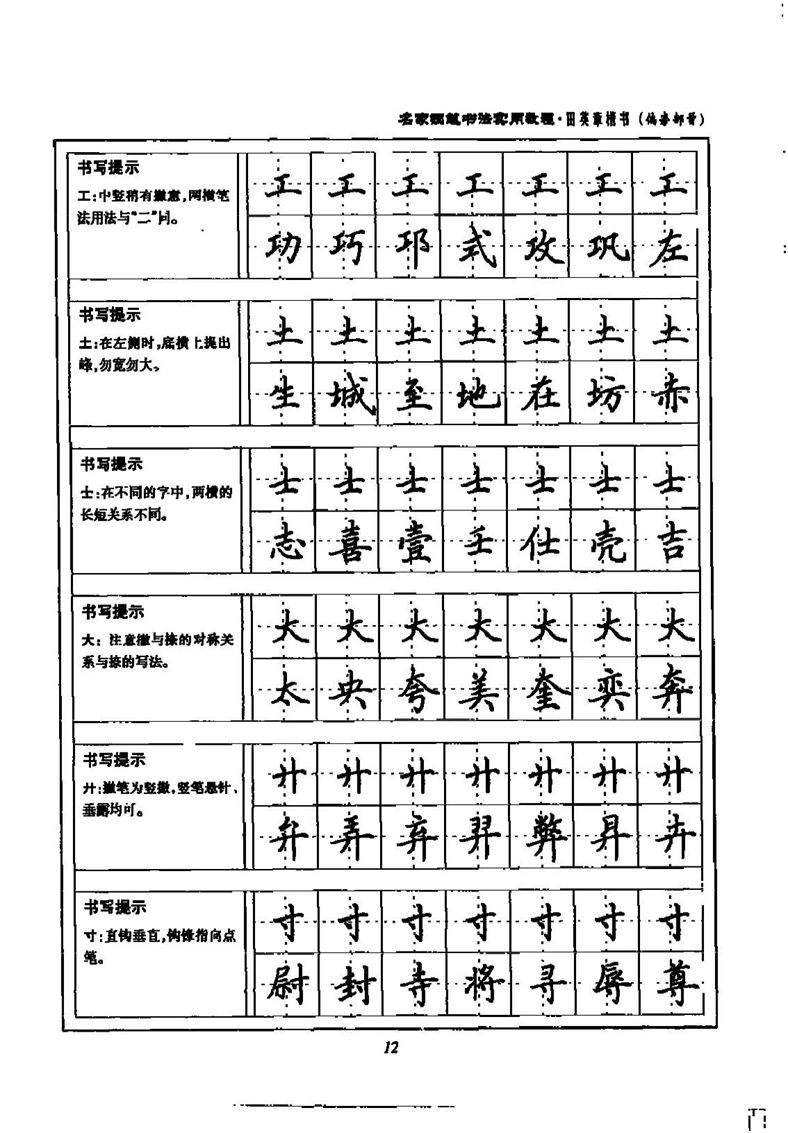 名家钢笔书法实用教程·田英章楷书(偏旁部首)
书写提示
工:中竖稍有撇意,两横笔
法用法与“二”同。
工工工工工工工
功巧邛式攻巩左
书写提示
土:在左侧时,底横上提出
峰,勿宽勿大。
土土土土土土土
生城至地在坊赤
书写提示
士:在不同的字中,两横的
长短关系不同。
士士士士士士士
志喜壹壬仕壳吉
书写提示
大:注意撇与捺的对称关
系与捺的写法。
大大大大大大大
太央夸美奎奕奔
书写提示
廾:撇笔为竖撇,竖笔悬针、
垂露均可。
廾廾廾廾廾廾廾
弁弄弃羿弊昇卉
书写提示
寸:直钩垂直,钩锋指向点
笔。
寸寸寸寸寸寸寸
尉封寺将寻辱尊
12